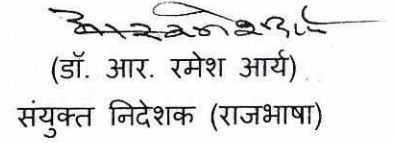 (डॉ. आर. रमेश आर्य)
संयुक्त निदेशक (राजभाषा)